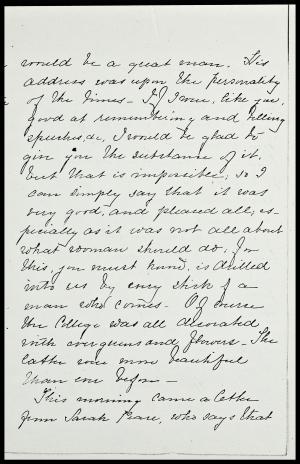 would be a great man. His
address was upon the personality
of the times - If I were, like you,
good at remembering and telling
speeches, &c, I would be glad to
give you the substance of it.
but that is impossible; so I
can simply say that it was
very good, and pleased all; es-
pecially as it was not all about
what woman should do, for
this, you must know, is drilled
into us by every stick of a
man who comes - Of course
the College was all decorated
with evergreens and flowers - The
latter were more beautiful
than ever before -
This morning came a letter
from Sarah, who says that